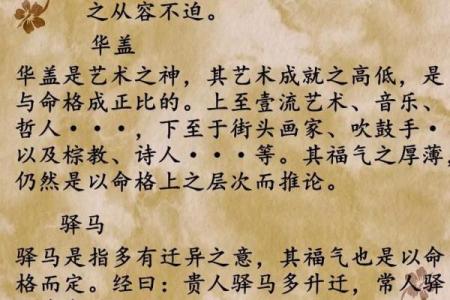 之从容不迫。
华盖
华盖是艺术之神，其艺术成就之高低，是
与命格成正比的。上至壹流艺术、音乐、
哲人···，下至于街头画家、吹鼓手·
以及棕教、诗人···等。其福气之厚薄，
仍然是以命格上之层次而推论。
驿马
驿马是指多有迁异之意，其福气也是以命
格而定。经曰：贵人驿马多升迁，常人驿